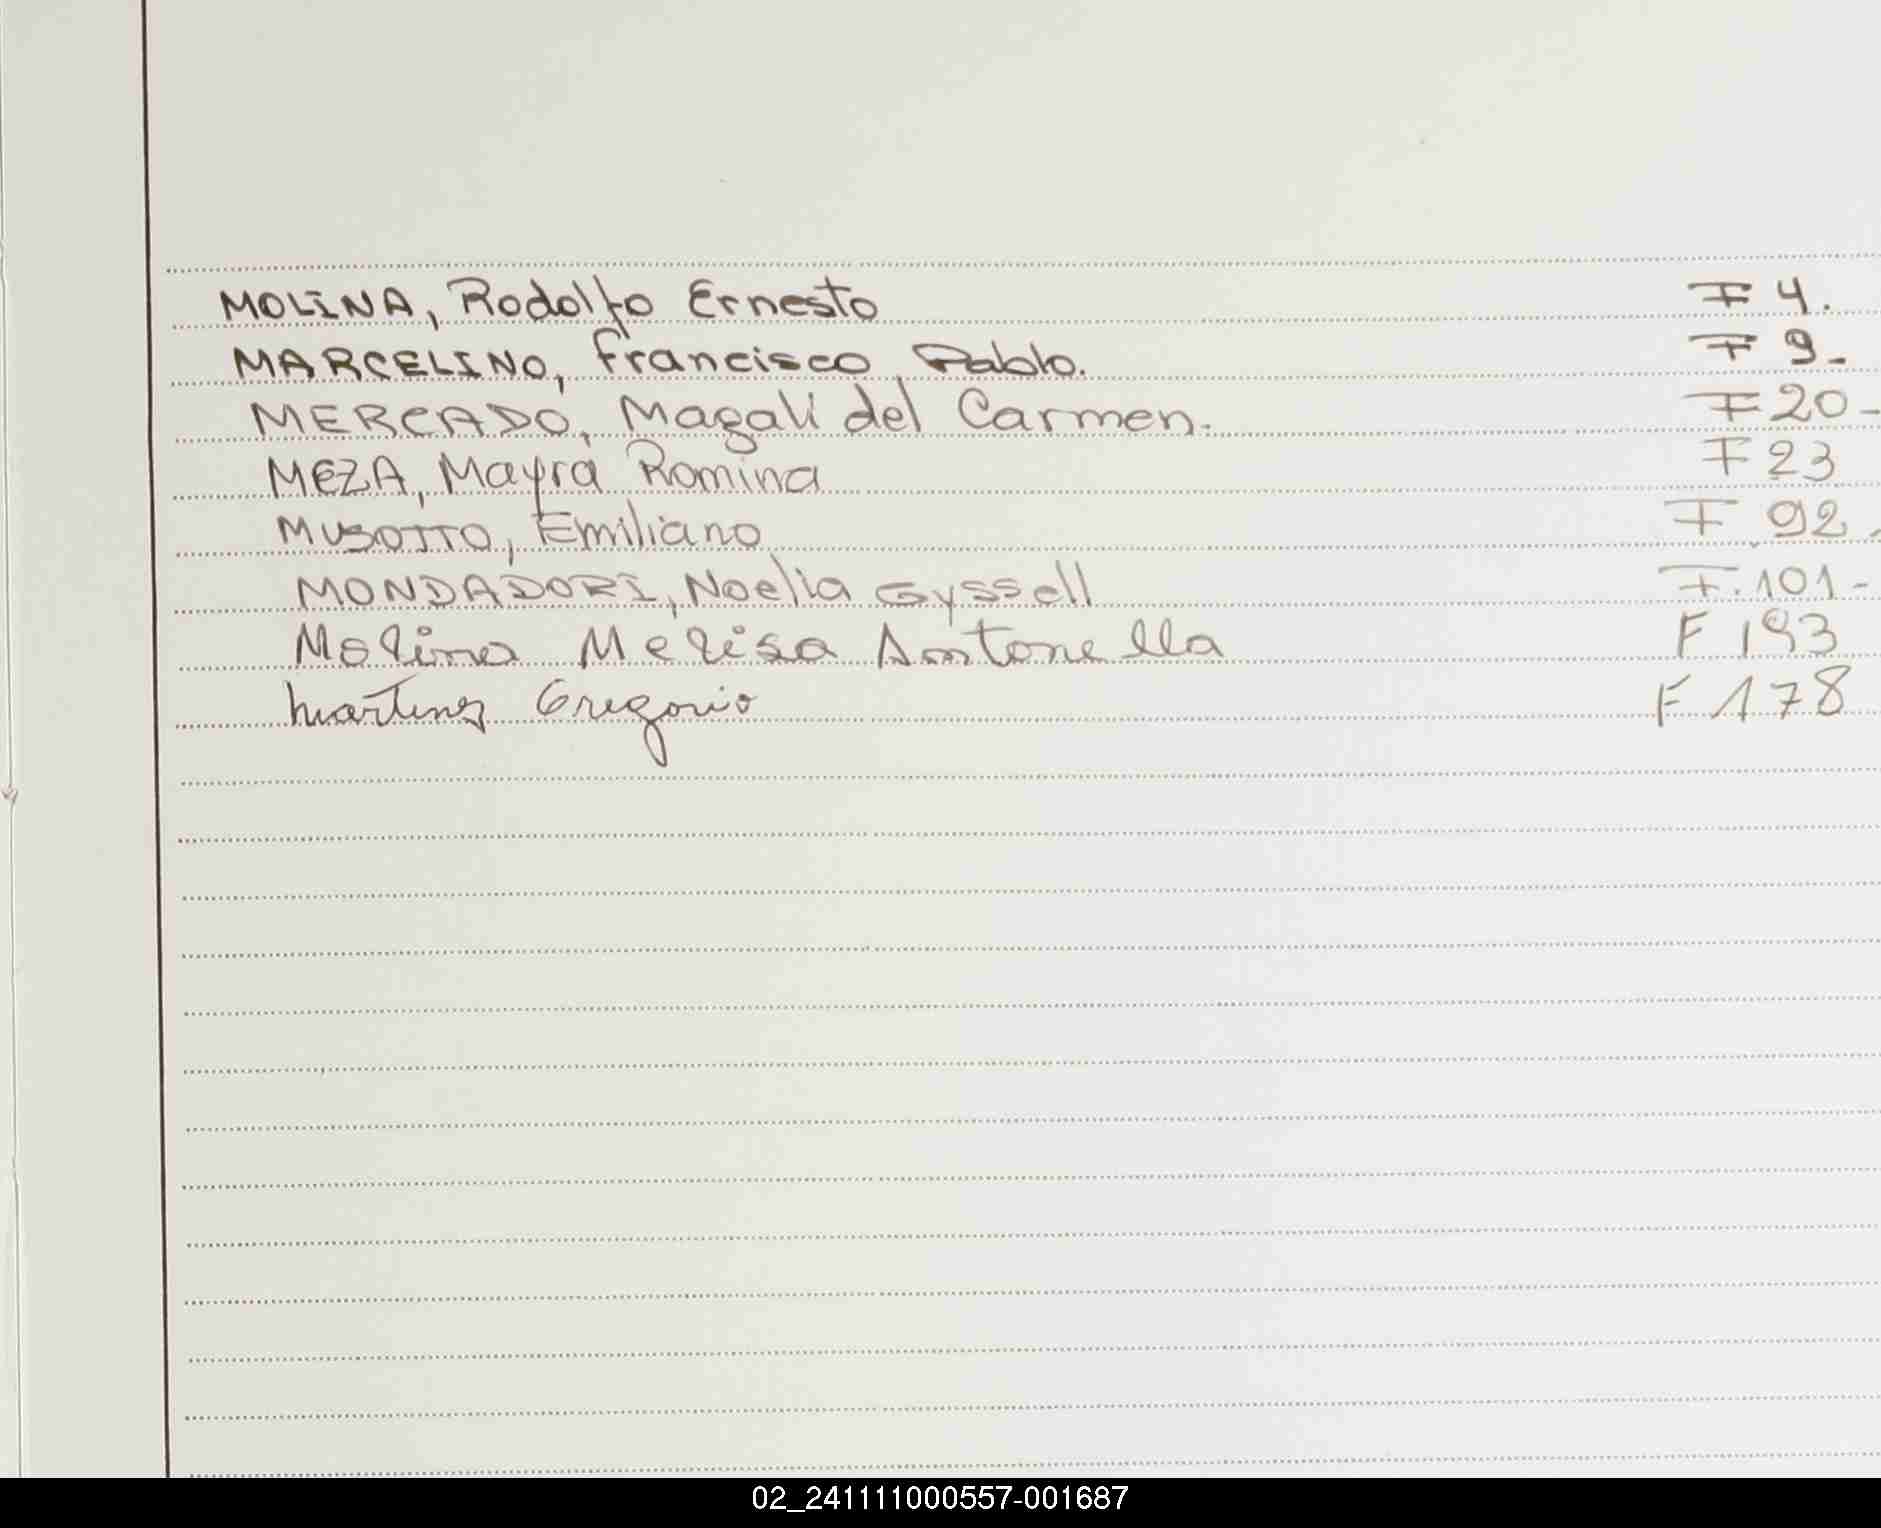 MOLINA, Rodolfo Ernesto F 4.
MARCELINO, Francisco Pablo. F 9-
MERCADO, Magali del Carmen. F 20-
MEZA, Mayra Romina F 23
MUSOTTO, Emiliano F 92.
MONDADORI, Noelia Gyssell F. 101-
Molina Melisa Antonella F 193
Martinez Gregorio F 178
02_241111000557-001687